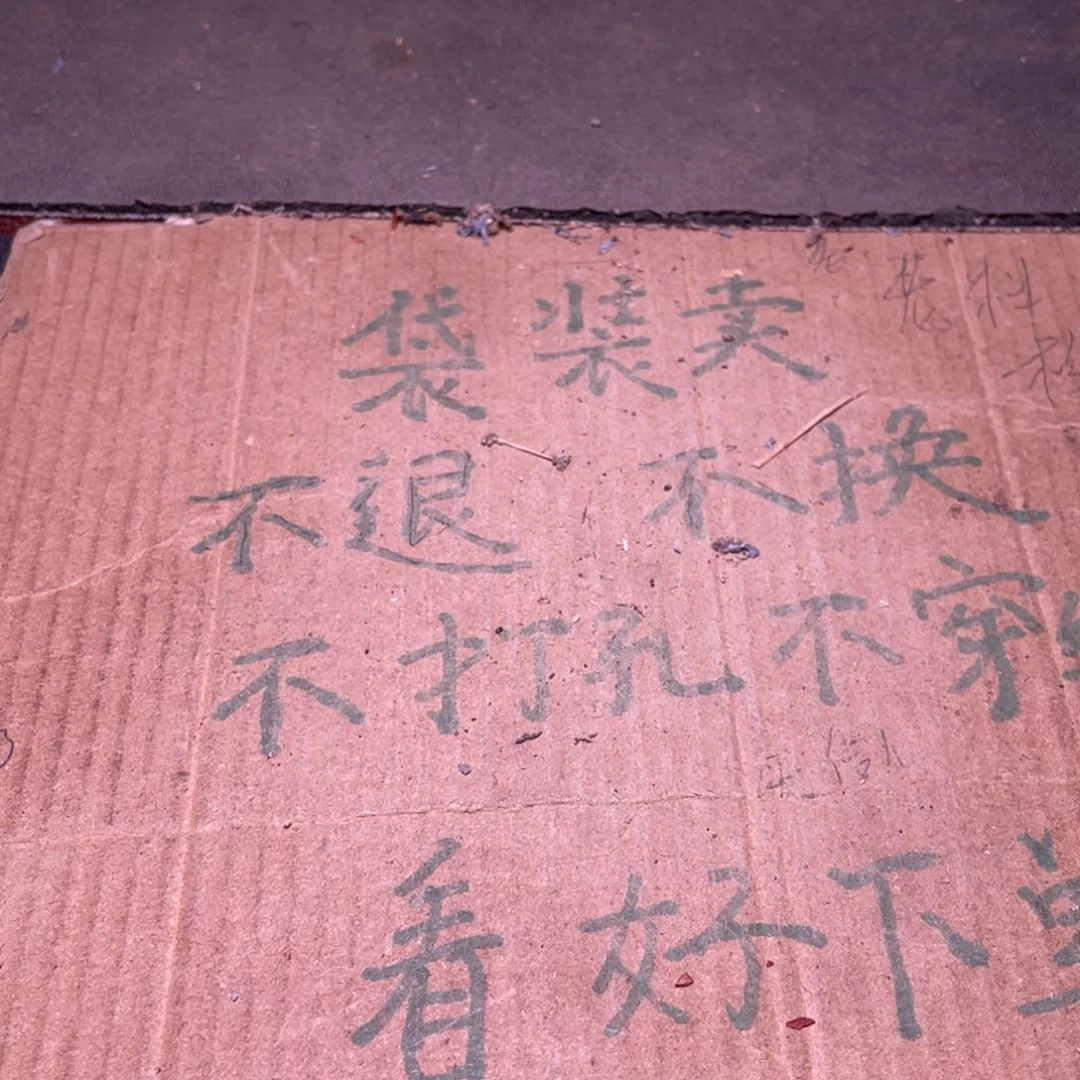 袋装卖
不退 不换
不打孔 不穿
看好下单